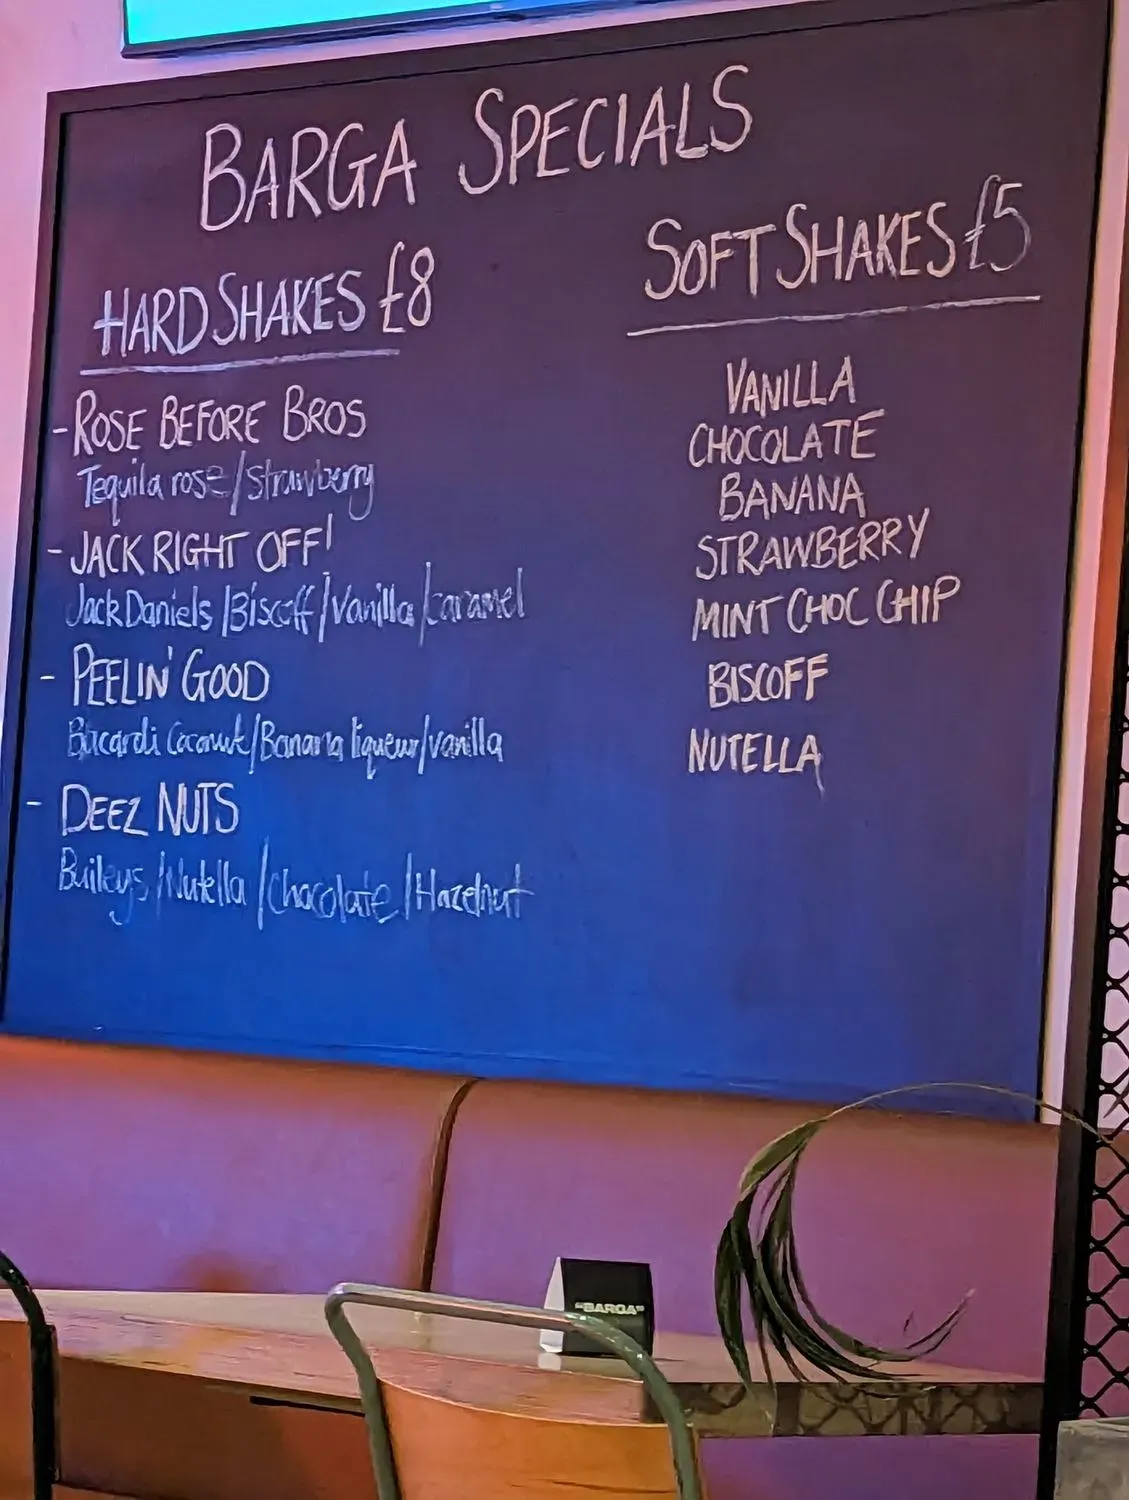 BARGA SPECIALS
HARD SHAKES £8
- ROSE BEFORE BROS
Tequila rose/Strawberry
- JACK RIGHT OFF!
Jack Daniels/Biscoff/Vanilla/caramel
- PEELIN' GOOD
Bacardi Coconut/Banana liqueur/vanilla
- DEEZ NUTS
Baileys/Nutella/Chocolate/Hazelnut
SOFT SHAKES £5
VANILLA
CHOCOLATE
BANANA
STRAWBERRY
MINT CHOC CHIP
BISCOFF
NUTELLA
"BARGA"